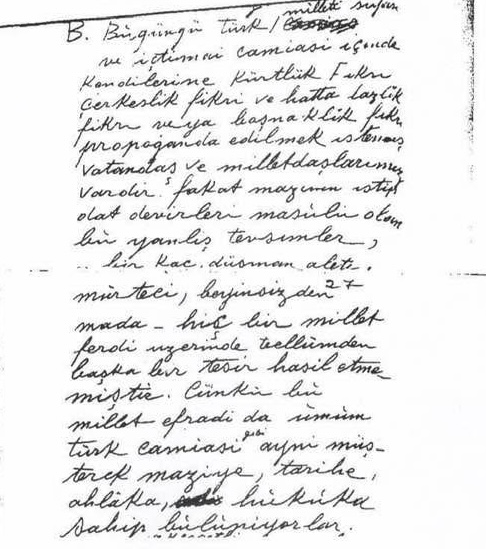 B. Bugüngü türk milleti siyasi
ve içtimai camiasi içinde
kendilerine Kürtlük Fikri
Çerkeslik fikri ve hatta lazlik
fikri veya boşnaklik fikri
propaganda edilmek istenmiş
vatandaş ve milletdaşlarımız
vardır. fakat mazinin istip
dat devirleri masülü olan
bu yanliş tevsimler,
bir kaç düşman aleti,
mürteci, beyinsizden
mada - hiç bir millet
ferdi uzerinde teellümden
başka bir tesir hasil etme
miştir. Çünkü bu
millet efradi da umum
türk camiasi gibi ayni müş-
terek maziye, tarihe,
ahlâka, hukuka
sahip bulunuyorlar.